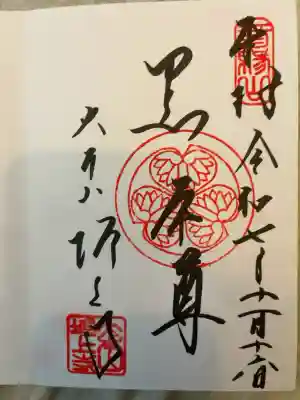 奉拝 令和七年十一月十六日
黒本尊
大本山 増上寺